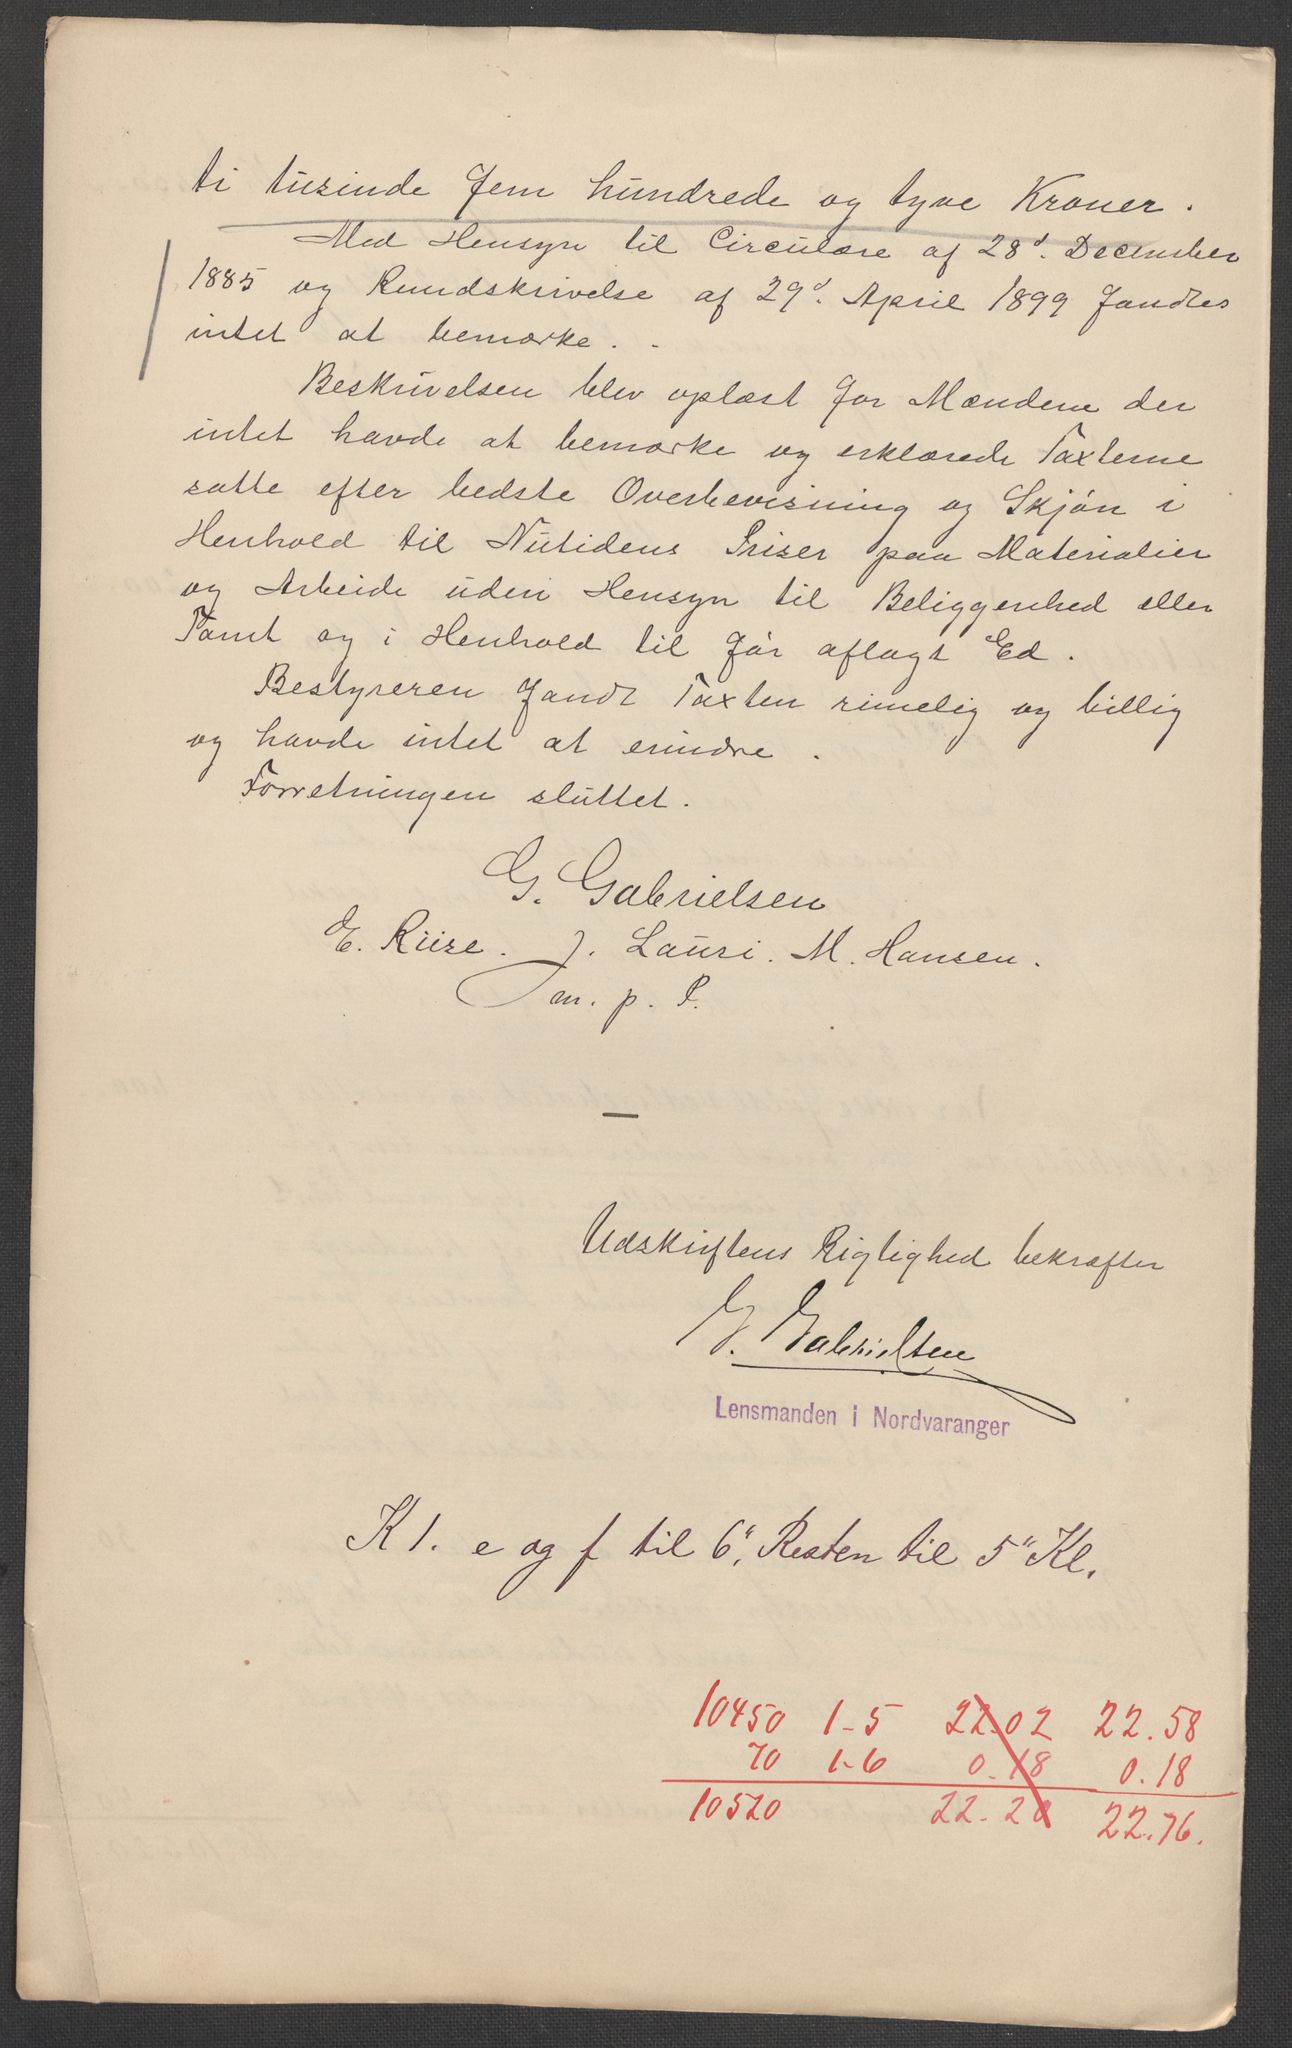 ti tusinde fem hundrede og tyve Kroner.
Med Hensyn til Circulære af 28d. December
1885 og Rundskrivelse af 29d. April 1899 fandtes
intet at bemærke.
Beskrivelsen blev oplæst for Mændene der
intet havde at bemærke og erklærede Taxterne
satte efter bedste Overbevisning og Skjøn i
Henhold til Nutidens Priser paa Materialier
og Arbeide uden Hensyn til Beliggenhed eller
Tomt og i Henhold til før aflagt Ed.
Bestyreren fandt Taxten rimelig og billig
og havde intet at erindre.
Forretningen sluttet.
G. Gabrielsen
E. Riise. J. Lauri. M. Hansen.
m. p. P.
Udskriftens Rigtighed bekræfter
G. Gabrielsen
Lensmanden i Nordvaranger
K 1. e og f til 6", Resten til 5" Kl.
10450 1-5 22.02 22.58
70 1-6 0.18 0.18
10520 22.20 22.76.